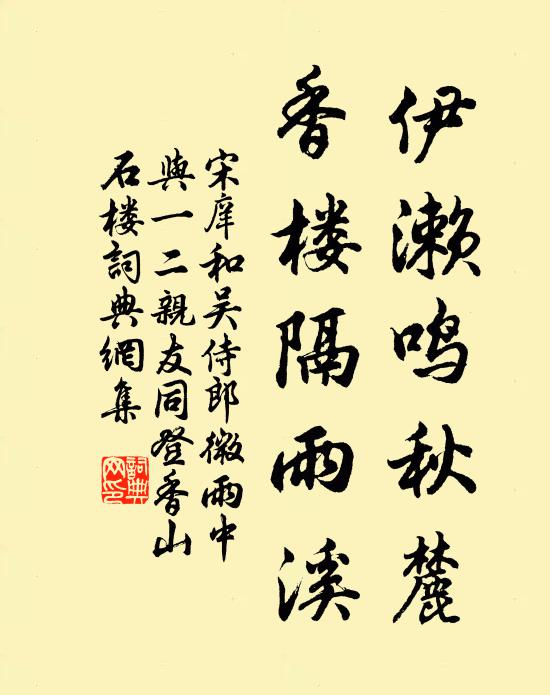 伊濑鸣秋麓
香楼隔雨溪
宋庠和吴侍郎微雨中
与一二親友同登香山
石楼詞典網集
詞典网印